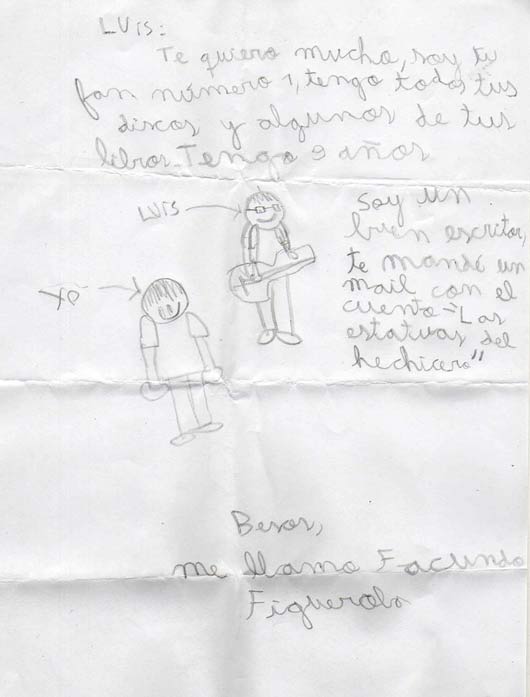 LUIS:
Te quiero mucho, soy tu
fan número 1, tengo todos tus
discos y algunos de tus
libros. Tengo 9 años
LUIS
Soy un
buen escritor,
te mandé un
mail con el
cuento "Las
estatuas del
hechicero"
YO
Besos,
me llamo Facundo